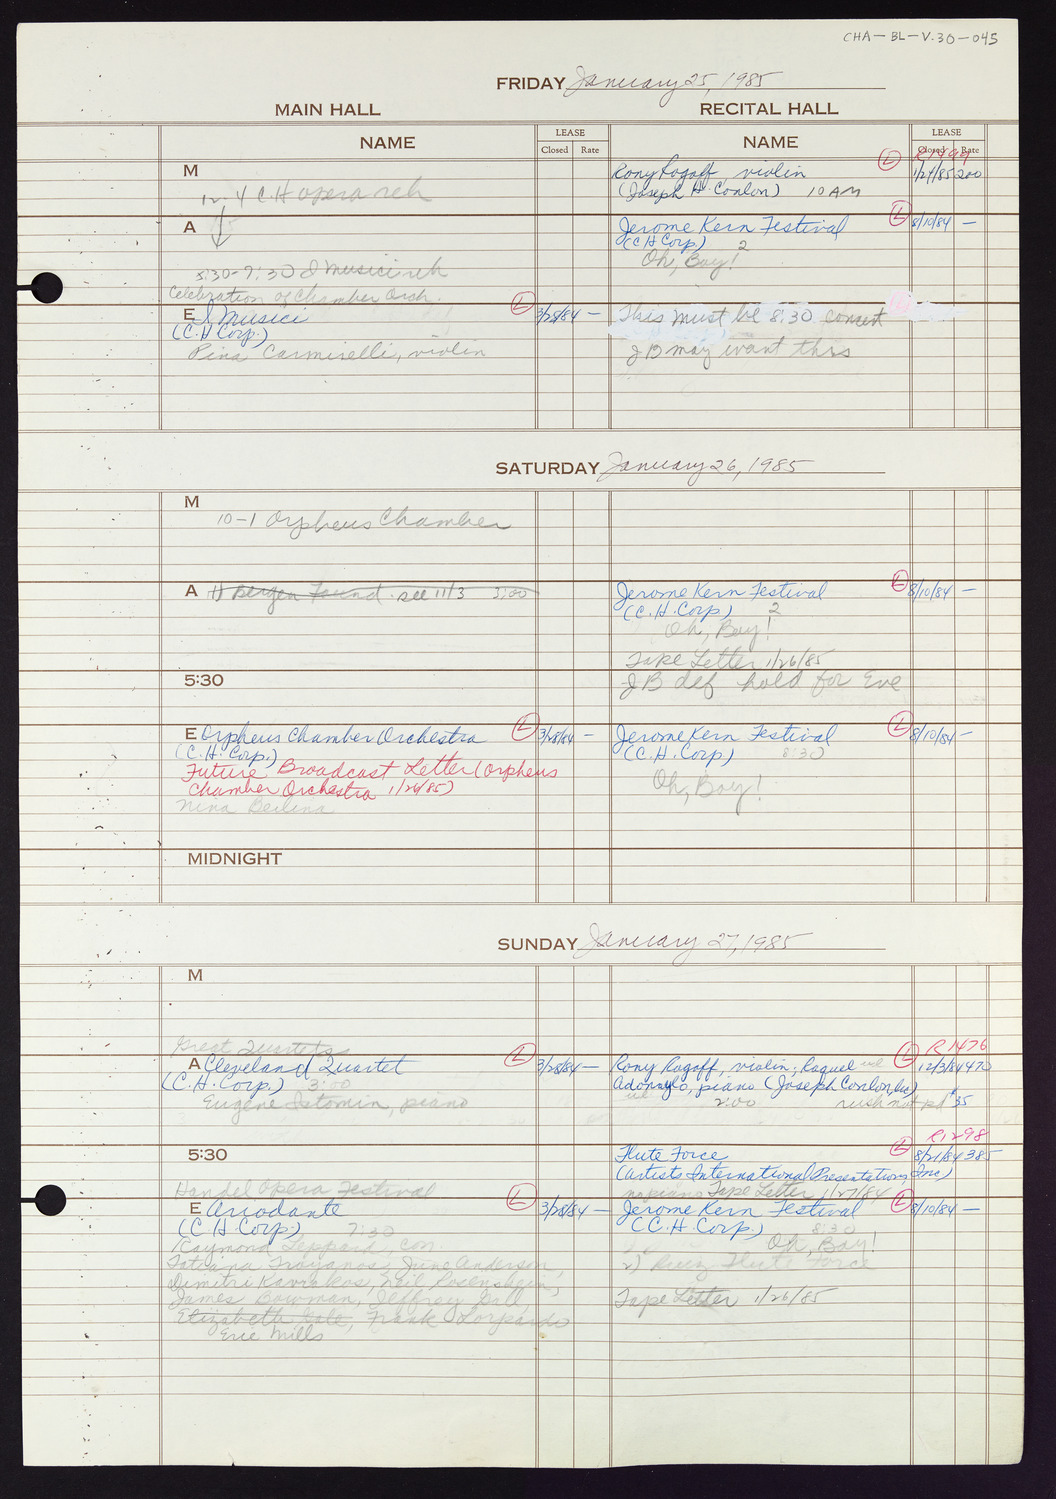 CHA-BL-V.30-045
FRIDAY January 25, 1985
MAIN HALL
RECITAL HALL
NAME
LEASE
Closed Rate
NAME
LEASE
Closed Rate
M
12-4 C.H opera reh
A
5:30-7:30 I Musici reh
Celebration of Chamber Orch.
E I Musici L 3/28/84 —
(C.H Corp.)
Pina Carmirelli, violin
L R1499
Rony Rogoff, violin 1/21/85 200
(Joseph H. Conlon) 10 AM
Jerome Kern Festival L 8/10/84 —
(C H Corp.) 2
Oh, Boy!
This must be 8:30 concert
JB may want this
SATURDAY January 26, 1985
M
10-1 Orpheus Chamber
A H Bergen Found. see 11/3 3:00
5:30
E Orpheus Chamber Orchestra L 3/28/84 —
(C.H. Corp.)
Future Broadcast Letter (Orpheus
Chamber Orchestra 1/26/85)
Nina Beilina
MIDNIGHT
Jerome Kern Festival L 8/10/84 —
(C.H. Corp.) 2
Oh, Boy!
Tape Letter 1/26/85
JB def hold for Eve
Jerome Kern Festival L 8/10/84 —
(C.H. Corp) 8:30
Oh, Boy!
SUNDAY January 27, 1985
M
Great Quartets
A Cleveland Quartet L 3/28/84 —
(C.H. Corp.) 3:00
Eugene Istomin, piano
5:30
Handel Opera Festival
E Ariodante L 3/28/84 —
(C H Corp.) 7:30
Raymond Leppard, con.
Tatiana Troyanos, June Anderson,
Dimitri Kavrakos, Neil Rosenshein,
James Bowman, Jeffrey Gall,
Elizabeth Hale, Frank Lopardo
Erie Mills
R1476
Rony Rogoff, violin; Raquel L 12/3/84 470
Adonaylo, piano (Joseph Conlon,
2:00 rush not pd $35
R1298
Flute Force L 8/21/84 385
(Artists International Presentations, Inc)
no piano Tape Letter 1/27/84
Jerome Kern Festival L 8/10/84 —
(C.H. Corp.) 8:30
Oh, Boy!
2) Flute Force
Tape Letter 1/26/85